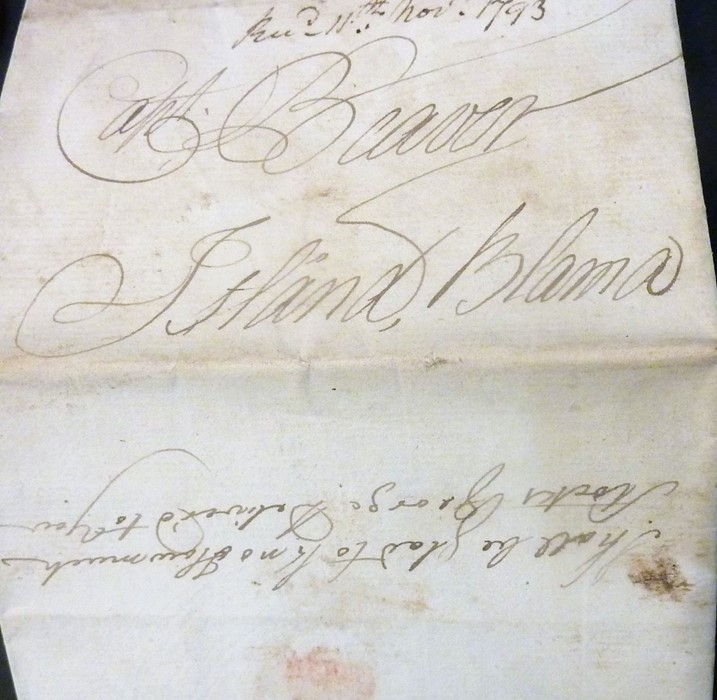 Recd 11th Novr. 1793
Capt. Beaver
Island, Blama
Shall be glad to kno How much
Stocks George Deliver'd to you